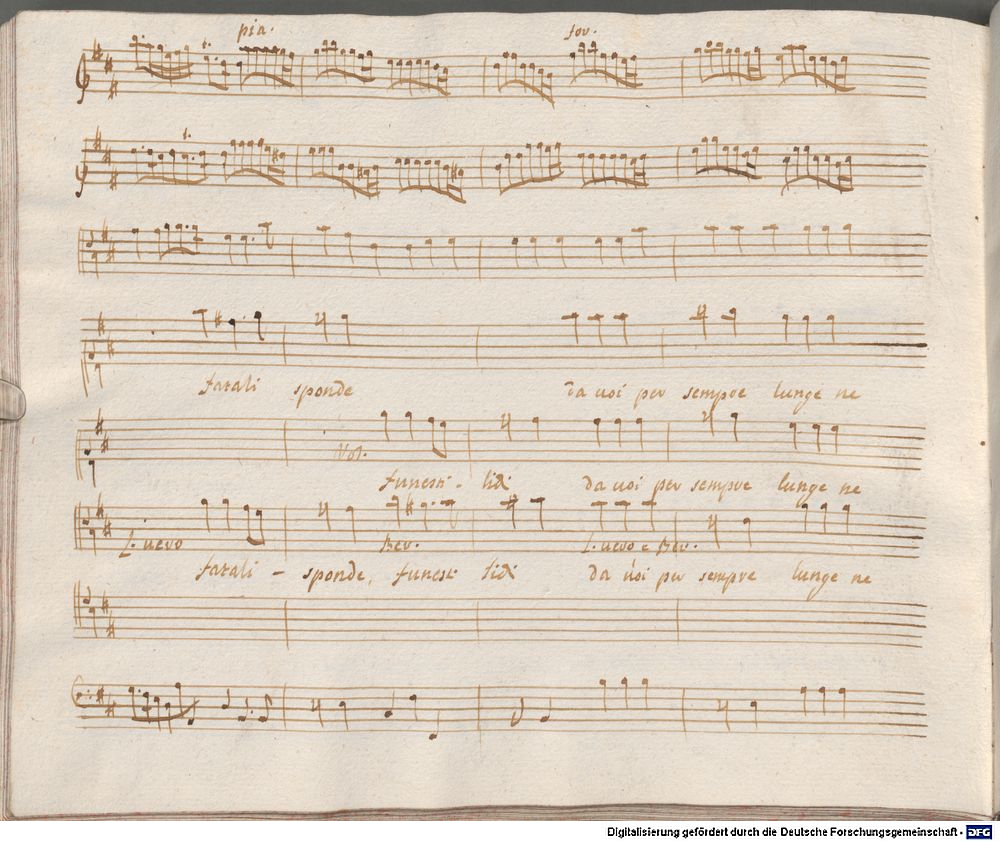 pia. for.
t.
t.
fatali sponde da voi per sempre lunge ne
Vol.
funesti - lidi da voi per sempre lunge ne
L. uero Ber. L. uero e Ber.
fatali - sponde, funesti lidi da voi per sempre lunge ne
Digitalisierung gefördert durch die Deutsche Forschungsgemeinschaft - DFG